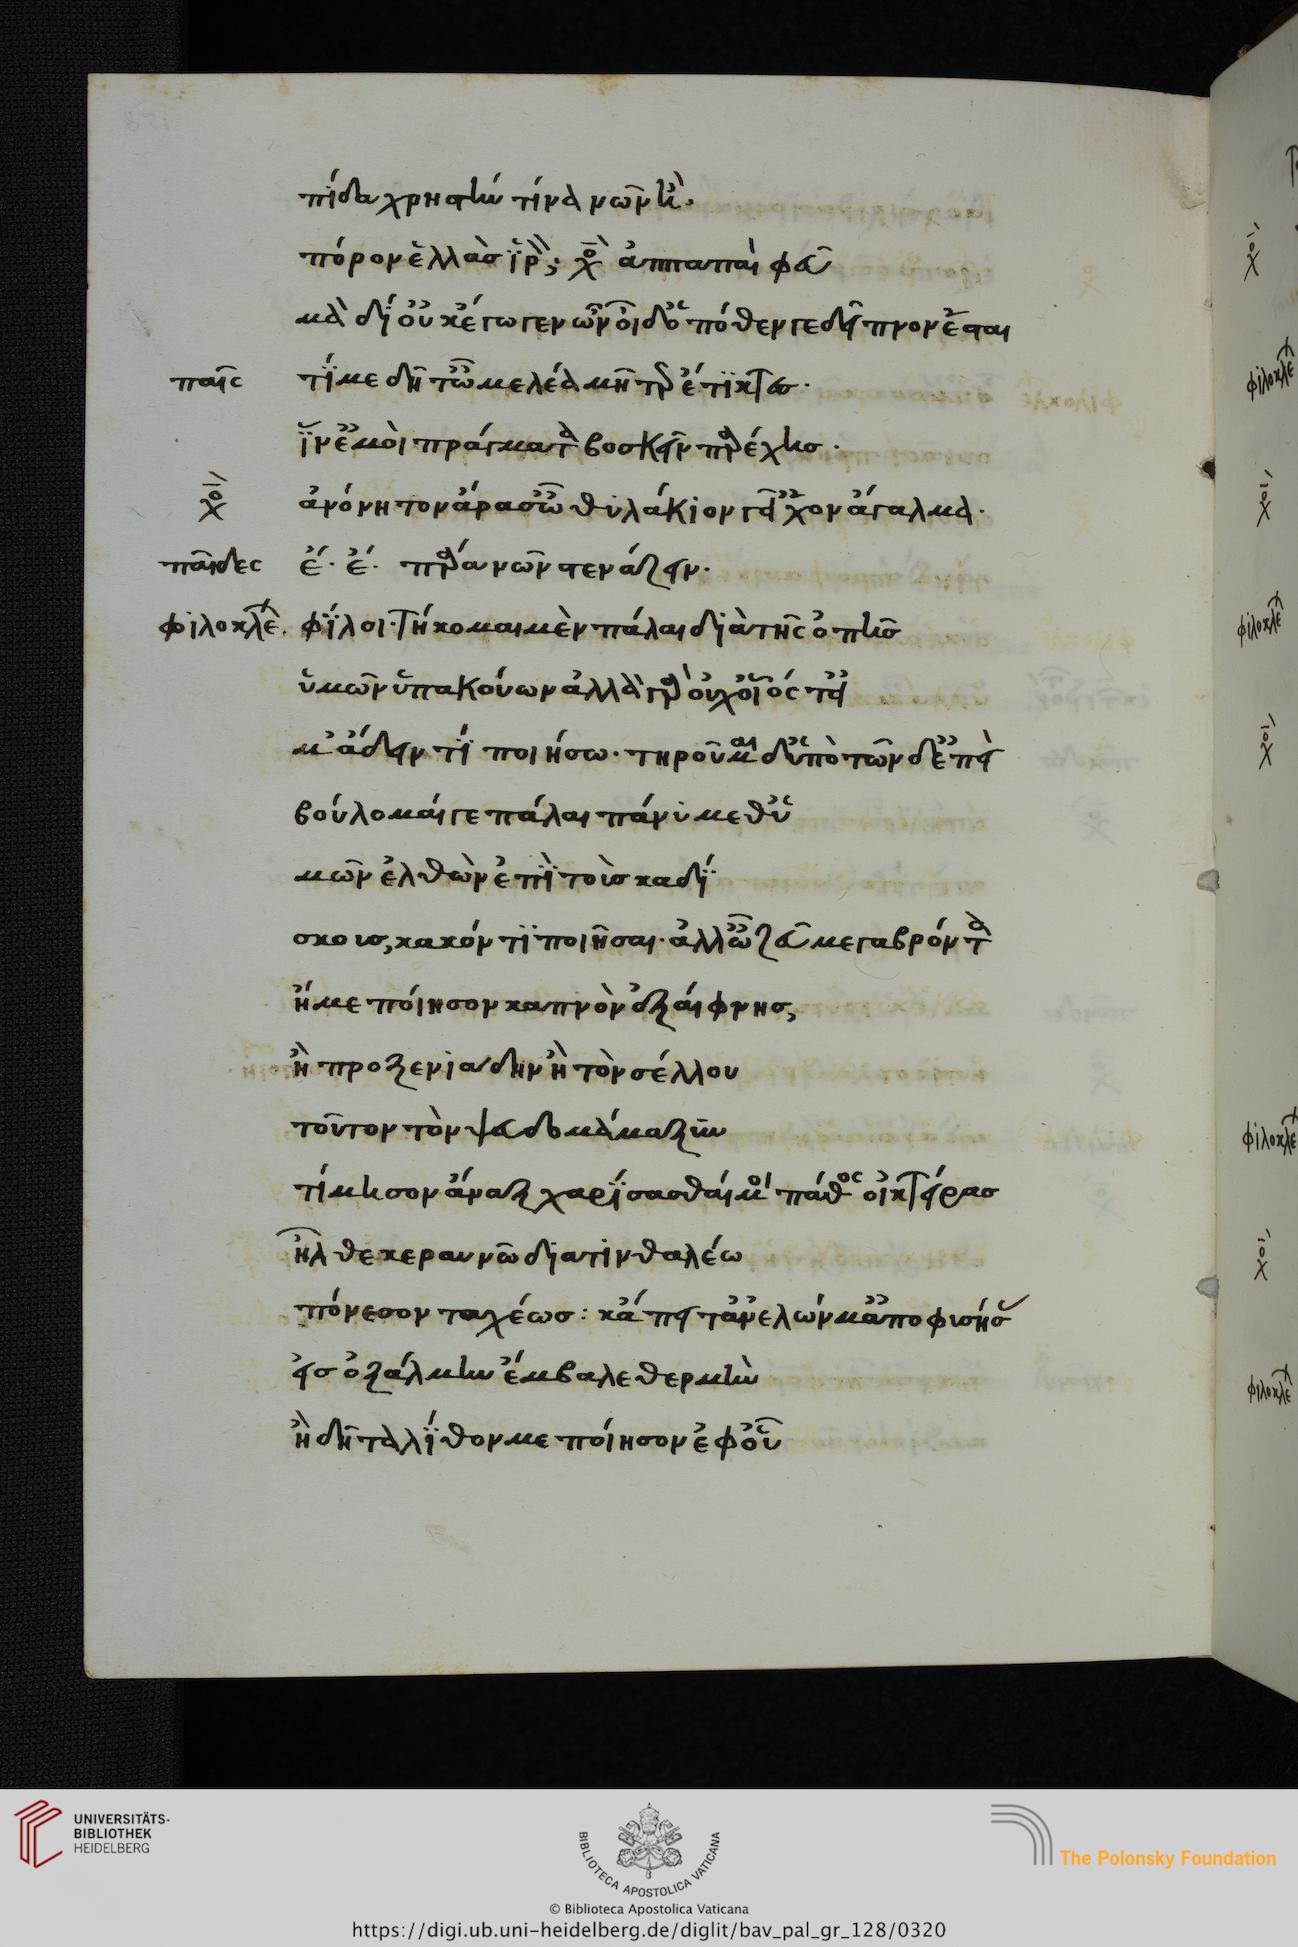 πίδα χρηστὴν τίνα νῶν ἢ
πόρον ἕλλας ἱρὸν; χο ἀππαπαὶ φεῦ
μὰ δί οὐκ ἔγωγε νῶν οἶδ ὁπόθεν γε δεῖπνον ἔσται
παῖς τί με δῆτ ὦ μελέα μῆτερ ἔτικτες.
ἵν ἐμοὶ πράγματα βόσκειν παρέχης.
χο ἀνόνητον ἄρα σ ὦ θυλάκιον γ εἶχον ἄγαλμα.
παῖδες ἒ. ἒ. πάρα νῶν στενάζειν.
φιλοκλε. φίλοι τήκομαι μὲν πάλαι διὰ τῆς ὀπῆς
ὑμῶν ὑπακούων ἀλλὰ γὰρ οὐχ οἷός τ εἰ
μ ἄδειν τί ποιήσω. τηροῦμαι δ ὑπὸ τῶνδ ἐπεὶ
βούλομαί γε πάλαι πάνυ μεθ ὑ
μῶν ἐλθὼν ἐπὶ τοὺς καδί
σκους, κακόν τι ποιῆσαι. ἀλλ ὦ ζεῦ μεγαβρόντα
ἤ με ποίησον καπνὸν ἐξαίφνης,
ἢ προξενιάδην ἢ τὸν σέλλου
τοῦτον τὸν ψευδομάμαξυν
τίμησον ἄναξ χαρίσασθαί μοι πάθος οἰκτείρας
ἦλθε κεραυνῶ διατινθαλέω
πόνεσον ταχέως: κἄπειτ ἀνελών μ ἀποφυσήσας
εἰς ὀξάλμην ἔμβαλε θερμὴν
ἢ δῆτα λίθον με ποίησον ἐφ οὗ
UNIVERSITÄTS-
BIBLIOTHEK
HEIDELBERG
BIBLIOTECA APOSTOLICA VATICANA
© Biblioteca Apostolica Vaticana
The Polonsky Foundation
https://digi.ub.uni-heidelberg.de/diglit/bav_pal_gr_128/0320